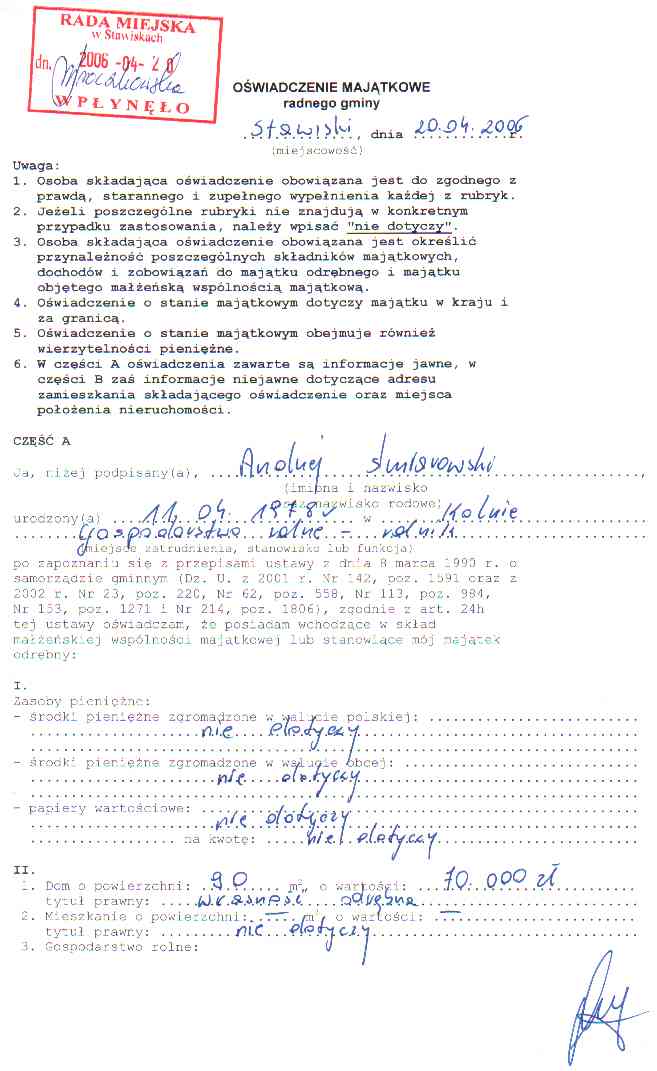 RADA MIEJSKA
w Stawiskach
dn. 2006 -04- 20
WPŁYNĘŁO
OŚWIADCZENIE MAJĄTKOWE
radnego gminy
Stawiski, dnia 20.04.2006 r.
(miejscowość)
Uwaga:
1. Osoba składająca oświadczenie obowiązana jest do zgodnego z
prawdą, starannego i zupełnego wypełnienia każdej z rubryk.
2. Jeżeli poszczególne rubryki nie znajdują w konkretnym
przypadku zastosowania, należy wpisać "nie dotyczy".
3. Osoba składająca oświadczenie obowiązana jest określić
przynależność poszczególnych składników majątkowych,
dochodów i zobowiązań do majątku odrębnego i majątku
objętego małżeńską wspólnością majątkową.
4. Oświadczenie o stanie majątkowym dotyczy majątku w kraju i
za granicą.
5. Oświadczenie o stanie majątkowym obejmuje również
wierzytelności pieniężne.
6. W części A oświadczenia zawarte są informacje jawne, w
części B zaś informacje niejawne dotyczące adresu
zamieszkania składającego oświadczenie oraz miejsca
położenia nieruchomości.
CZĘŚĆ A
Ja, niżej podpisany(a), Andrzej
(imiona i nazwisko
oraz nazwisko rodowe)
urodzony(a) 11. 04. 1978 w Kolnie
Gospodarstwo rolne - rolnik
(miejsce zatrudnienia, stanowisko lub funkcja)
po zapoznaniu się z przepisami ustawy z dnia 8 marca 1990 r. o
samorządzie gminnym (Dz. U. z 2001 r. Nr 142, poz. 1591 oraz z
2002 r. Nr 23, poz. 220, Nr 62, poz. 558, Nr 113, poz. 984,
Nr 153, poz. 1271 i Nr 214, poz. 1806), zgodnie z art. 24h
tej ustawy oświadczam, że posiadam wchodzące w skład
małżeńskiej wspólności majątkowej lub stanowiące mój majątek
odrębny:
I.
Zasoby pieniężne:
- środki pieniężne zgromadzone w walucie polskiej:
nie dotyczy
- środki pieniężne zgromadzone w walucie obcej:
nie dotyczy
- papiery wartościowe:
nie dotyczy
na kwotę: nie dotyczy
II.
1. Dom o powierzchni: 90 m², o wartości: 70.000 zł
tytuł prawny: własność odrębna
2. Mieszkanie o powierzchni: — m², o wartości: —
tytuł prawny: nie dotyczy
3. Gospodarstwo rolne: